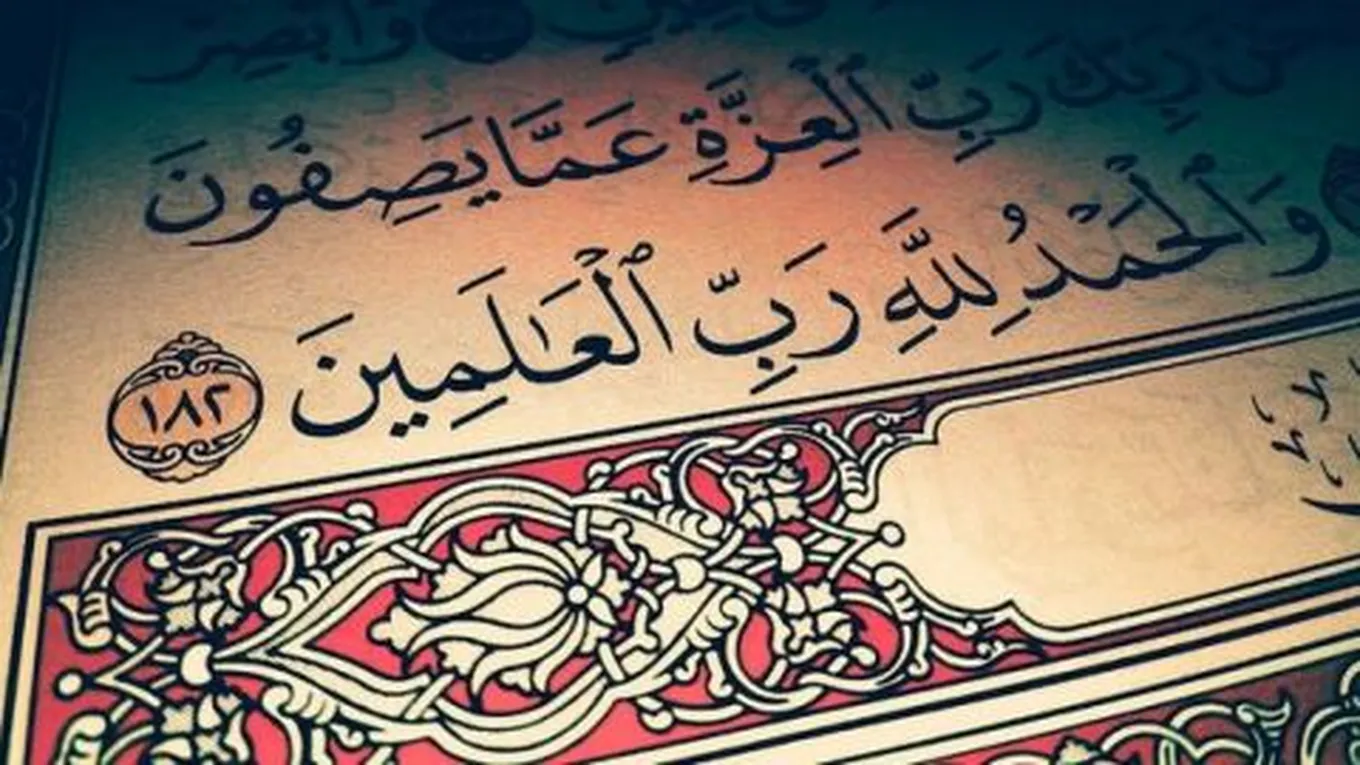 وَأَبْصِرْ
رَبِّكَ رَبِّ ٱلْعِزَّةِ عَمَّا يَصِفُونَ
وَٱلْحَمْدُ لِلَّهِ رَبِّ ٱلْعَـٰلَمِينَ ١٨٢